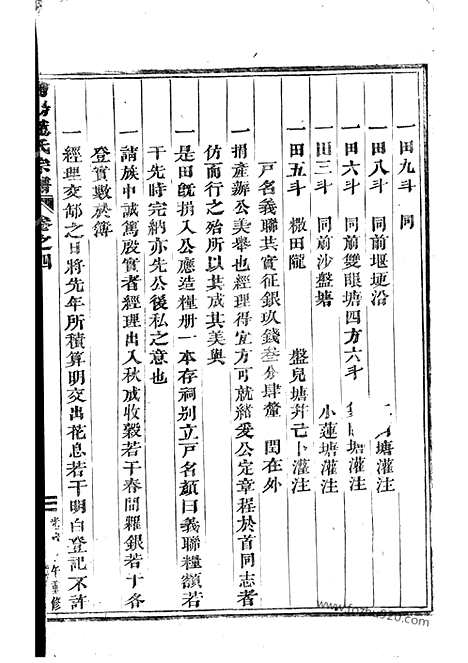 一田九斗 同
一田八斗 同前堰埂沿 塘灌注
一田六斗 同前雙眼塘四方六斗 塘灌注
一田三斗 同前沙盤塘 小蓮塘灌注
一田五斗 撒田隴 盤兒塘灌注
戶名義聯共實征銀玖錢叁分肆釐 閏在外
一捐產辦公美舉也經理得宜方可就緒爰公定章程於首同志者
仿而行之殆所以共成其美與
一是田旣捐入公應造糧册一本存祠别立戶名顏曰義聯糧額若
干先時完納亦先公後私之意也
一請族中誠篤殷實者經理出入秋成收穀若干春間糶銀若干各
登實數於簿
一經理交郤之日將先年所積算明交出花息若干明白登記不許
氏宗譜 卷之四
午重修
www.fozhu920.com